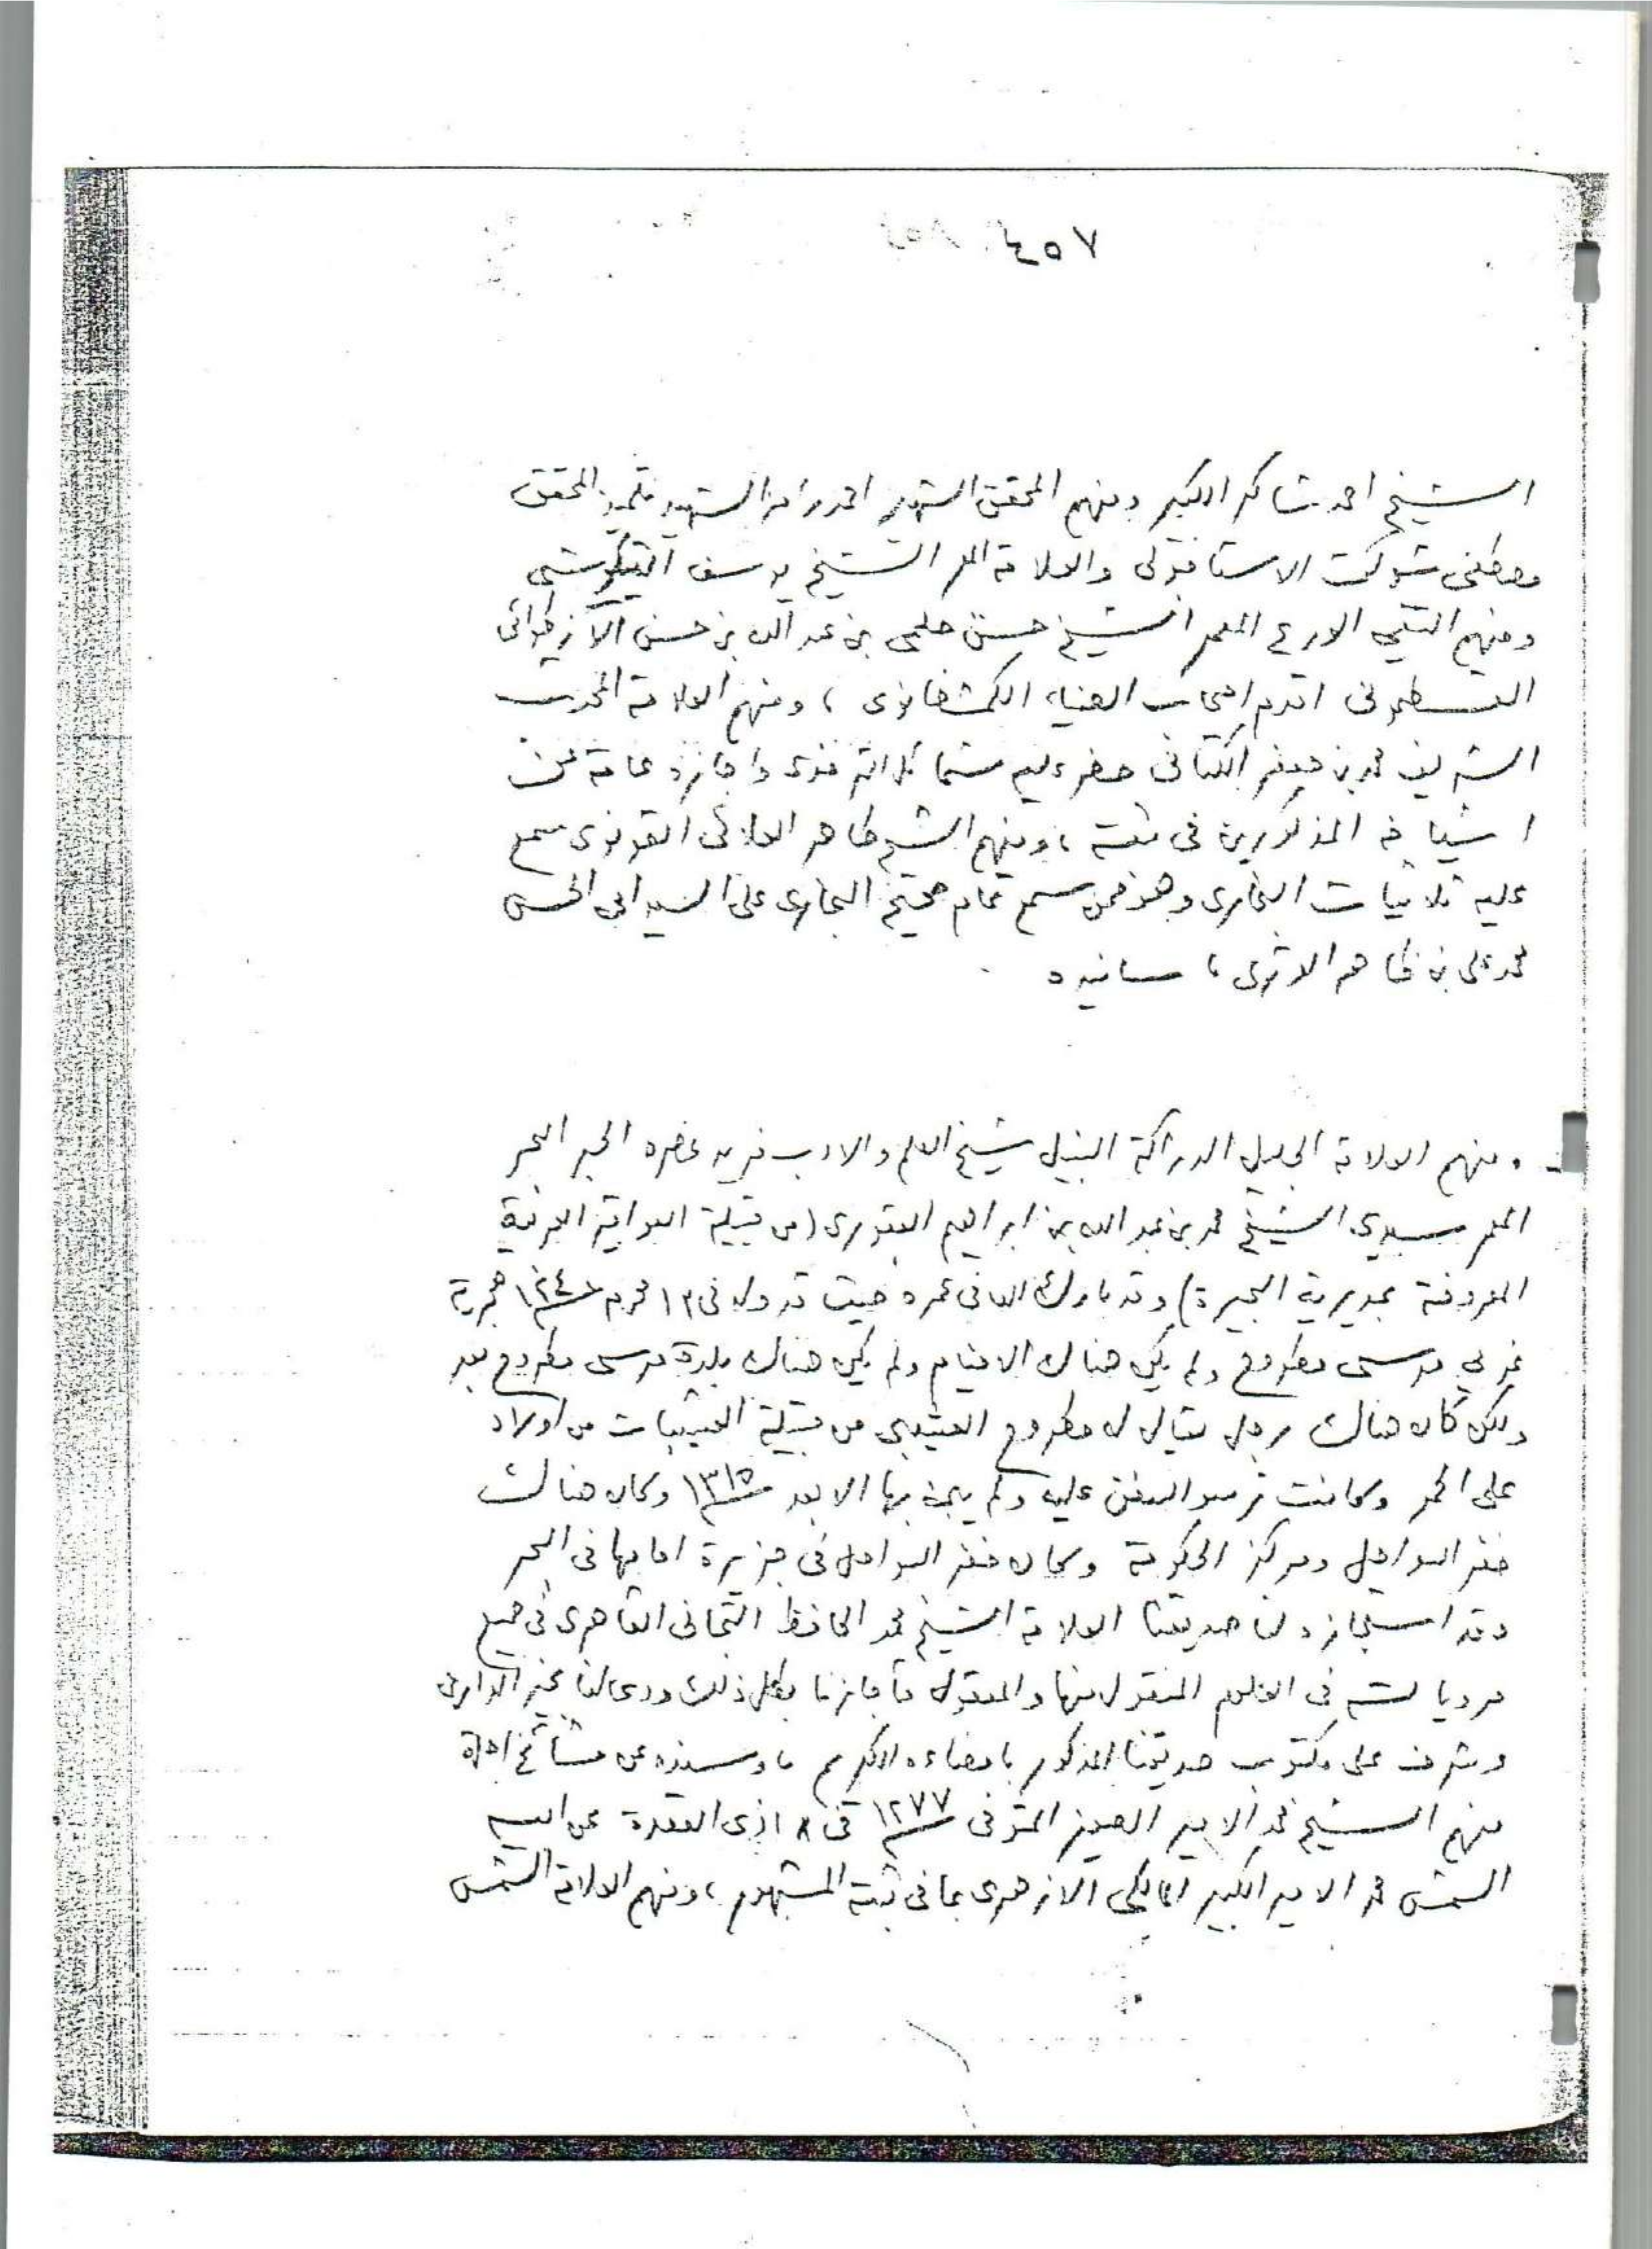 ٤٥٧
الشيخ احمد شاكر الكبير ومنهم المحقق الشهير احمد رامز الشهير تلميذ المحقق
مصطفى شوكت الاستانبولى والعلامة المعمر الشيخ يوسف التكوشى
ومنهم التقي الاورع المعمر الشيخ حسن حلمى بن عبد الله بن حسن
القسطمونى اقدم اصحاب الضياء الكمشخانوى ، ومنهم العلامة المحدث
الشريف محمد بن جعفر الكتانى حضر عليه شمائل الترمذى واجازه عامة عن
اشياخه المذكورين فى ثبته ، ومنهم الشيخ طاهر العلائى القونوى سمع
عليه ثلاثيات البخارى وهو ممن سمع تمام صحيح البخارى على السيد ابى الحسن
محمد على بن ظاهر الوترى ، مسانيده
ومنهم العلامة الجليل الدراكة النبيل شيخ العلم والادب فريد عصره الحبر البحر
المعمر سيدى الشيخ محمد بن عبد الله بن ابراهيم العقورى (من قبيلة العواقير البرقية
المعروفة بمديرية البحيرة) وقد بارك الله فى عمره حيث قد ولد فى ١٣ محرم ١٢٤٠ هجرية
غربي مرسى مطروح ولم يكن هناك الا خيام ولم يكن هناك بلدة مرسى مطروح بعد
ولكن كان هناك رجل يقال له مطروح العشيبى من قبيلة العشيبات من اولاد
على الحمر وكانت ترسو السفن عليه ولم يبن بها الا بعد ١٣١٥ وكان هناك
خفر السواحل ومركز الحكومة وكان خفر السواحل فى جزيرة امامها فى البحر
وقد استجازه لنا صديقنا العلامة الشيخ محمد الحافظ التجانى القاهرى فى جميع
مروياته فى العلوم المنقول منها والمعقول فأجازنا بكل ذلك ودعى لنا بخير الدارين
وشرف على مكتوب صديقنا المذكور بامضاءه الاكرم ، وسنده عن مشائخ اجلة
منهم الشيخ محمد الامير الصغير المتوفى ١٢٧٧ فى ١٨ ذى القعدة عن ابيه
الشمس محمد الامير الكبير المالكى الازهرى بما فى ثبته المشهور ، ومنهم العلامة الشمس